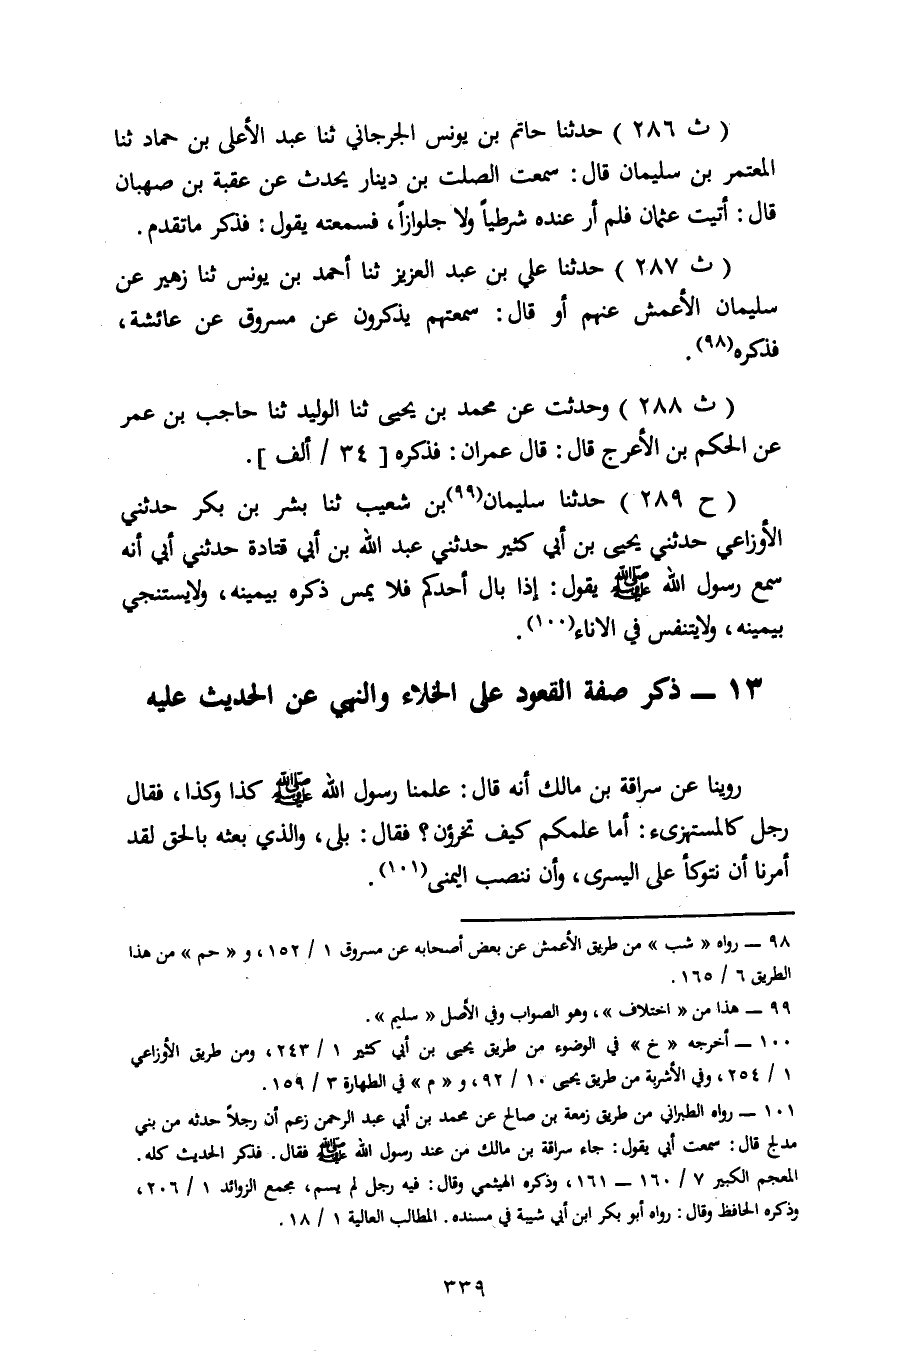 ( ث ٢٨٦ ) حدثنا حاتم بن يونس الجرجاني ثنا عبد الأعلى بن حماد ثنا
المعتمر بن سليمان قال : سمعت الصلت بن دينار يحدث عن عقبة بن صهبان
قال : أتيت عثمان فلم أر عنده شرطياً ولا جلوازاً ، فسمعته يقول : فذكر ماتقدم .
( ث ٢٨٧ ) حدثنا علي بن عبد العزيز ثنا أحمد بن يونس ثنا زهير عن
سليمان الأعمش عنهم أو قال : سمعتهم يذكرون عن مسروق عن عائشة ،
فذكره(٩٨) .
( ث ٢٨٨ ) وحدثت عن محمد بن يحيى ثنا الوليد ثنا حاجب بن عمر
عن الحكم بن الأعرج قال : قال عمران : فذكره [ ٣٤ / ألف ] .
( ح ٢٨٩ ) حدثنا سليمان(٩٩)بن شعيب ثنا بشر بن بكر حدثني
الأوزاعي حدثني يحيى بن أبي كثير حدثني عبد الله بن أبي قتادة حدثني أبي أنه
سمع رسول الله ﷺ يقول : إذا بال أحدكم فلا يمس ذكره بيمينه ، ولايستنجي
بيمينه ، ولايتنفس في الاناء(١٠٠) .
١٣ — ذكر صفة القعود على الخلاء والنهي عن الحديث عليه
روينا عن سراقة بن مالك أنه قال : علمنا رسول الله ﷺ كذا وكذا ، فقال
رجل كالمستهزىء : أما علمكم كيف تخرؤن ؟ فقال : بلى ، والذي بعثه بالحق لقد
أمرنا أن نتوكأ على اليسرى ، وأن ننصب اليمنى(١٠١) .
٩٨ — رواه « شب » من طريق الأعمش عن بعض أصحابه عن مسروق ١ / ١٥٢ ، و « حم » من هذا
الطريق ٦ / ١٦٥ .
٩٩ — هذا من « اختلاف » ، وهو الصواب وفي الأصل « سليم » .
١٠٠ — أخرجه « خ » في الوضوء من طريق يحيى بن أبي كثير ١ / ٢٤٣ ، ومن طريق الأوزاعي
١ / ٢٥٤ ، وفي الأشربة من طريق يحيى ١٠ / ٩٢ ، و « م » في الطهارة ٣ / ١٥٩ .
١٠١ — رواه الطبراني من طريق زمعة بن صالح عن محمد بن أبي عبد الرحمن زعم أن رجلاً حدثه من بني
مدلج قال : سمعت أبي يقول : جاء سراقة بن مالك من عند رسول الله ﷺ فقال . فذكر الحديث كله .
المعجم الكبير ٧ / ١٦٠ — ١٦١ ، وذكره الهيثمي وقال : فيه رجل لم يسم ، مجمع الزوائد ١ / ٢٠٦ ،
وذكره الحافظ وقال : رواه أبو بكر ابن أبي شيبة في مسنده . المطالب العالية ١ / ١٨ .
٣٣٩